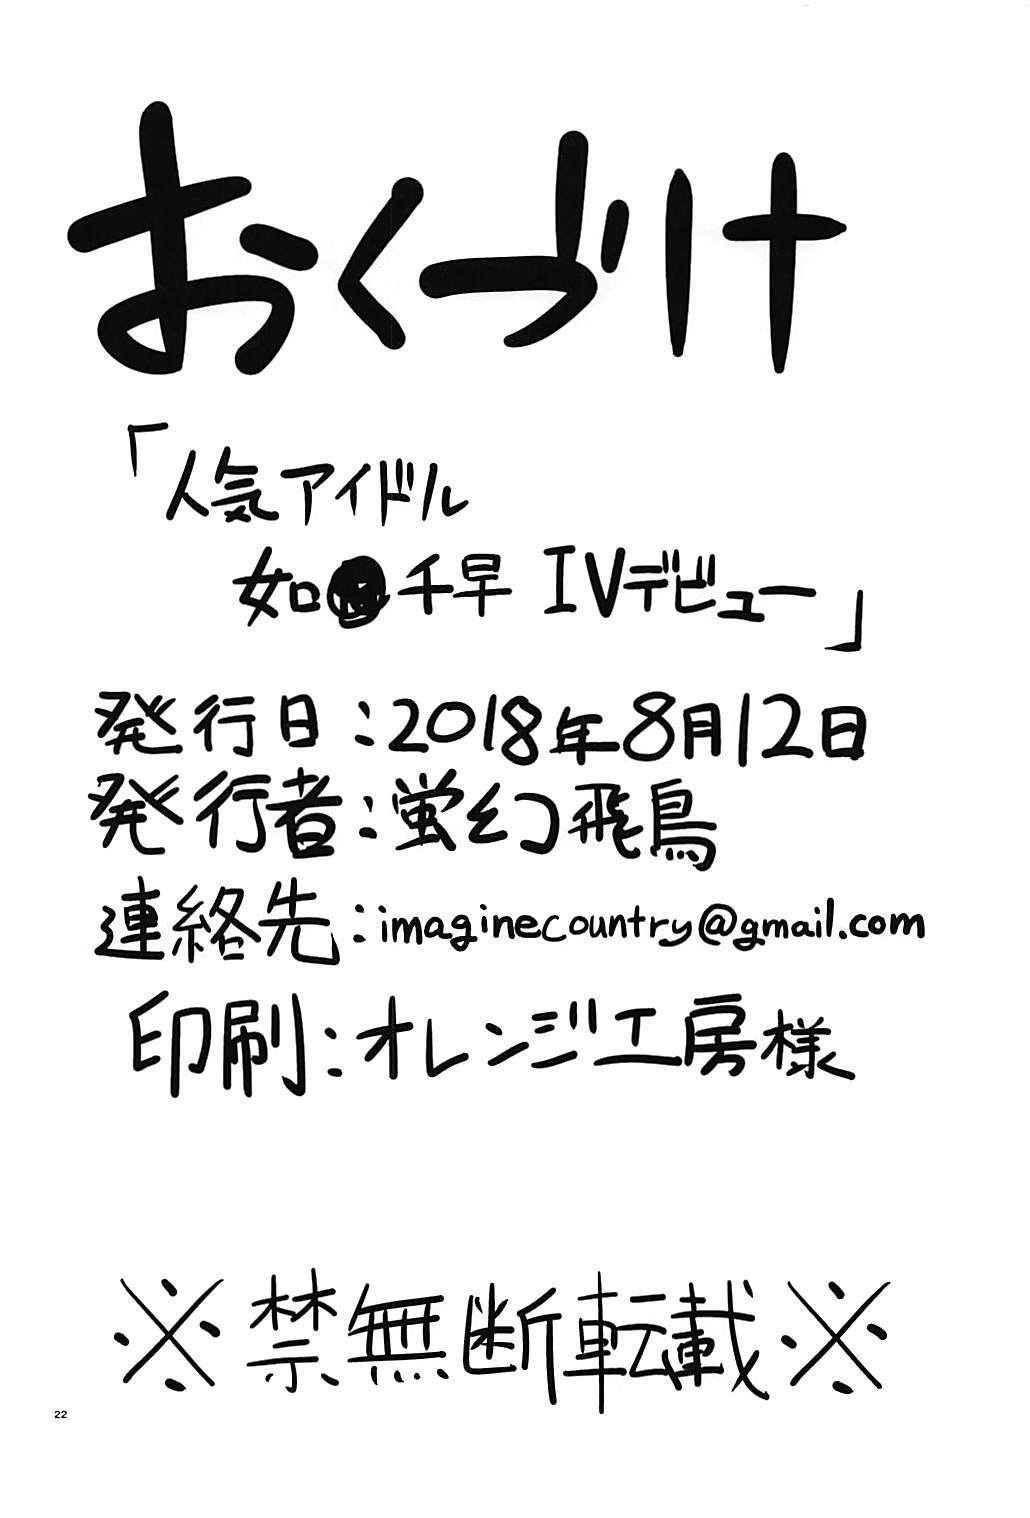 おくづけ
「人気アイドル
如 千早 IVデビュー」
発行日:2018年8月12日
発行者:蛍幻飛鳥
連絡先:imaginecountry@gmail.com
印刷:オレンジ工房様
※禁無断転載※
22